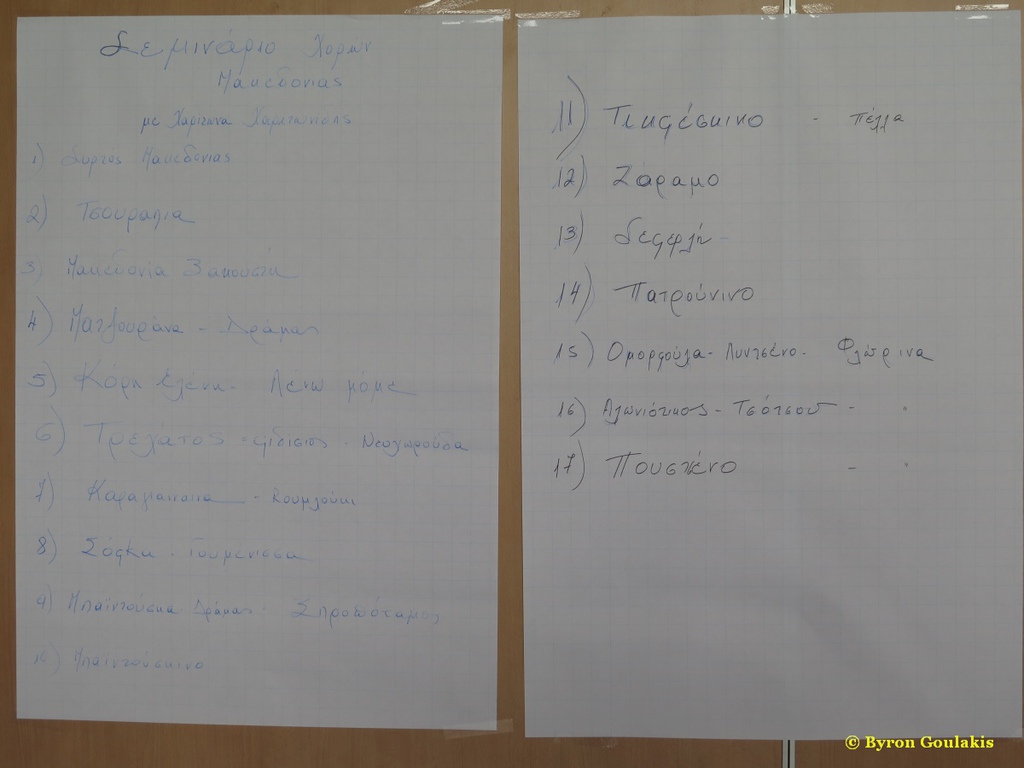 Σεμινάριο Χορών
Μακεδονίας
με Χαρίτωνα Χαριτωνίδη
1) Συρτός Μακεδονίας
2) Τσουράπια
3) Μακεδονία Ζακουστή
4) Ματζουράνα - Δράμας
5) Κόρη Ελένη - Λένω μόμε
6) Τρελάτος - φίδισιος - Νεοχωρούδα
7) Καραγιαννοπα - Ρουμλούκι
8) Σόφκα - Γουμένισσα
9) Μπαϊντούσκα Δράμας - Ξηροπόταμος
10) Μπαϊντούσκινο
11) Τικφέσκινο - Πέλλα
12) Ζάραμο
13) Δεφφλή -
14) Πατρούνινο
15) Ομορφούλα - Λυντσένο - Φλώρινα
16) Αλωνιώτικος - Τσότσου - "
17) Πουστένο - "
© Byron Goulakis